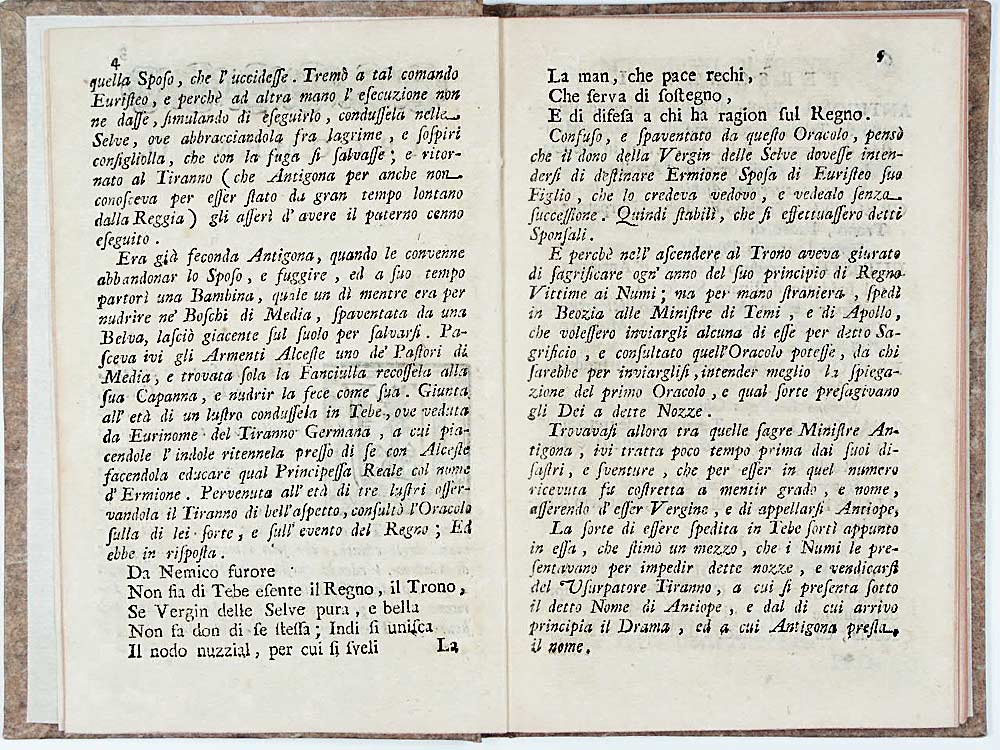 4
quella Sposo, che l'uccidesse. Tremò a tal comando
Euristeo, e perchè ad altra mano l'esecuzione non
ne dasse, simulando di eseguirlo, condussela nelle
Selve, ove abbracciandola fra lagrime, e sospiri
consigliolla, che con la fuga si salvasse; e ritor-
nato al Tiranno (che Antigona per anche non
conosceva per esser stato da gran tempo lontano
dalla Reggia) gli asserì d'avere il paterno cenno
eseguito.
Era già feconda Antigona, quando le convenne
abbandonar lo Sposo, e fuggire, ed a suo tempo
partorì una Bambina, quale un dì mentre era per
nudrire ne' Boschi di Media, spaventata da una
Belva, lasciò giacente sul suolo per salvarsi. Pa-
sceva ivi gli Armenti Alceste uno de' Pastori di
Media, e trovata sola la Fanciulla recossela alla
sua Capanna, e nudrir la fece come sua. Giunta
all'età di un lustro condussela in Tebe, ove veduta
da Eurinome del Tiranno Germana, a cui pia-
cendole l'indole ritennela presso di se con Alceste
facendola educare qual Principessa Reale col nome
d'Ermione. Pervenuta all'età di tre lustri osser-
vandola il Tiranno di bell'aspetto, consultò l'Oracolo
sulla di lei sorte, e sull'evento del Regno; Ed
ebbe in risposta.
Da Nemico furore
Non fia di Tebe esente il Regno, il Trono,
Se Vergin delle Selve pura, e bella
Non fa don di se stessa; Indi si unisca
Il nodo nuzzial, per cui si sveli
La
5
La man, che pace rechi,
Che serva di sostegno,
E di difesa a chi ha ragion sul Regno.
Confuso, e spaventato da questo Oracolo, pensò
che il dono della Vergin delle Selve dovesse inten-
dersi di destinare Ermione Sposa di Euristeo suo
Figlio, che lo credeva vedovo, e vedealo senza
successione. Quindi stabilì, che si effettuassero detti
Sponsali.
E perchè nell'ascendere al Trono aveva giurato
di sagrificare ogn'anno del suo principio di Regno
Vittime ai Numi; ma per mano straniera, spedì
in Beozia alle Ministre di Temi, e di Apollo,
che volessero inviargli alcuna di esse per detto Sa-
grificio, e consultato quell'Oracolo potesse, da chi
sarebbe per inviarglisi, intender meglio la spiega-
zione del primo Oracolo, e qual sorte presagivano
gli Dei a dette Nozze.
Trovavasi allora tra quelle sagre Ministre An-
tigona, ivi tratta poco tempo prima dai suoi di-
sastri, e sventure, che per esser in quel numero
ricevuta fu costretta a mentir grado, e nome,
asserendo d'esser Vergine, e di appellarsi Antiope,
La sorte di essere spedita in Tebe sortì appunto
in essa, che stimò un mezzo, che i Numi le pre-
sentavano per impedir dette nozze, e vendicarsi
del Usurpatore Tiranno, a cui si presenta sotto
il detto Nome di Antiope, e dal di cui arrivo
principia il Drama, ed a cui Antigona presta
il nome.